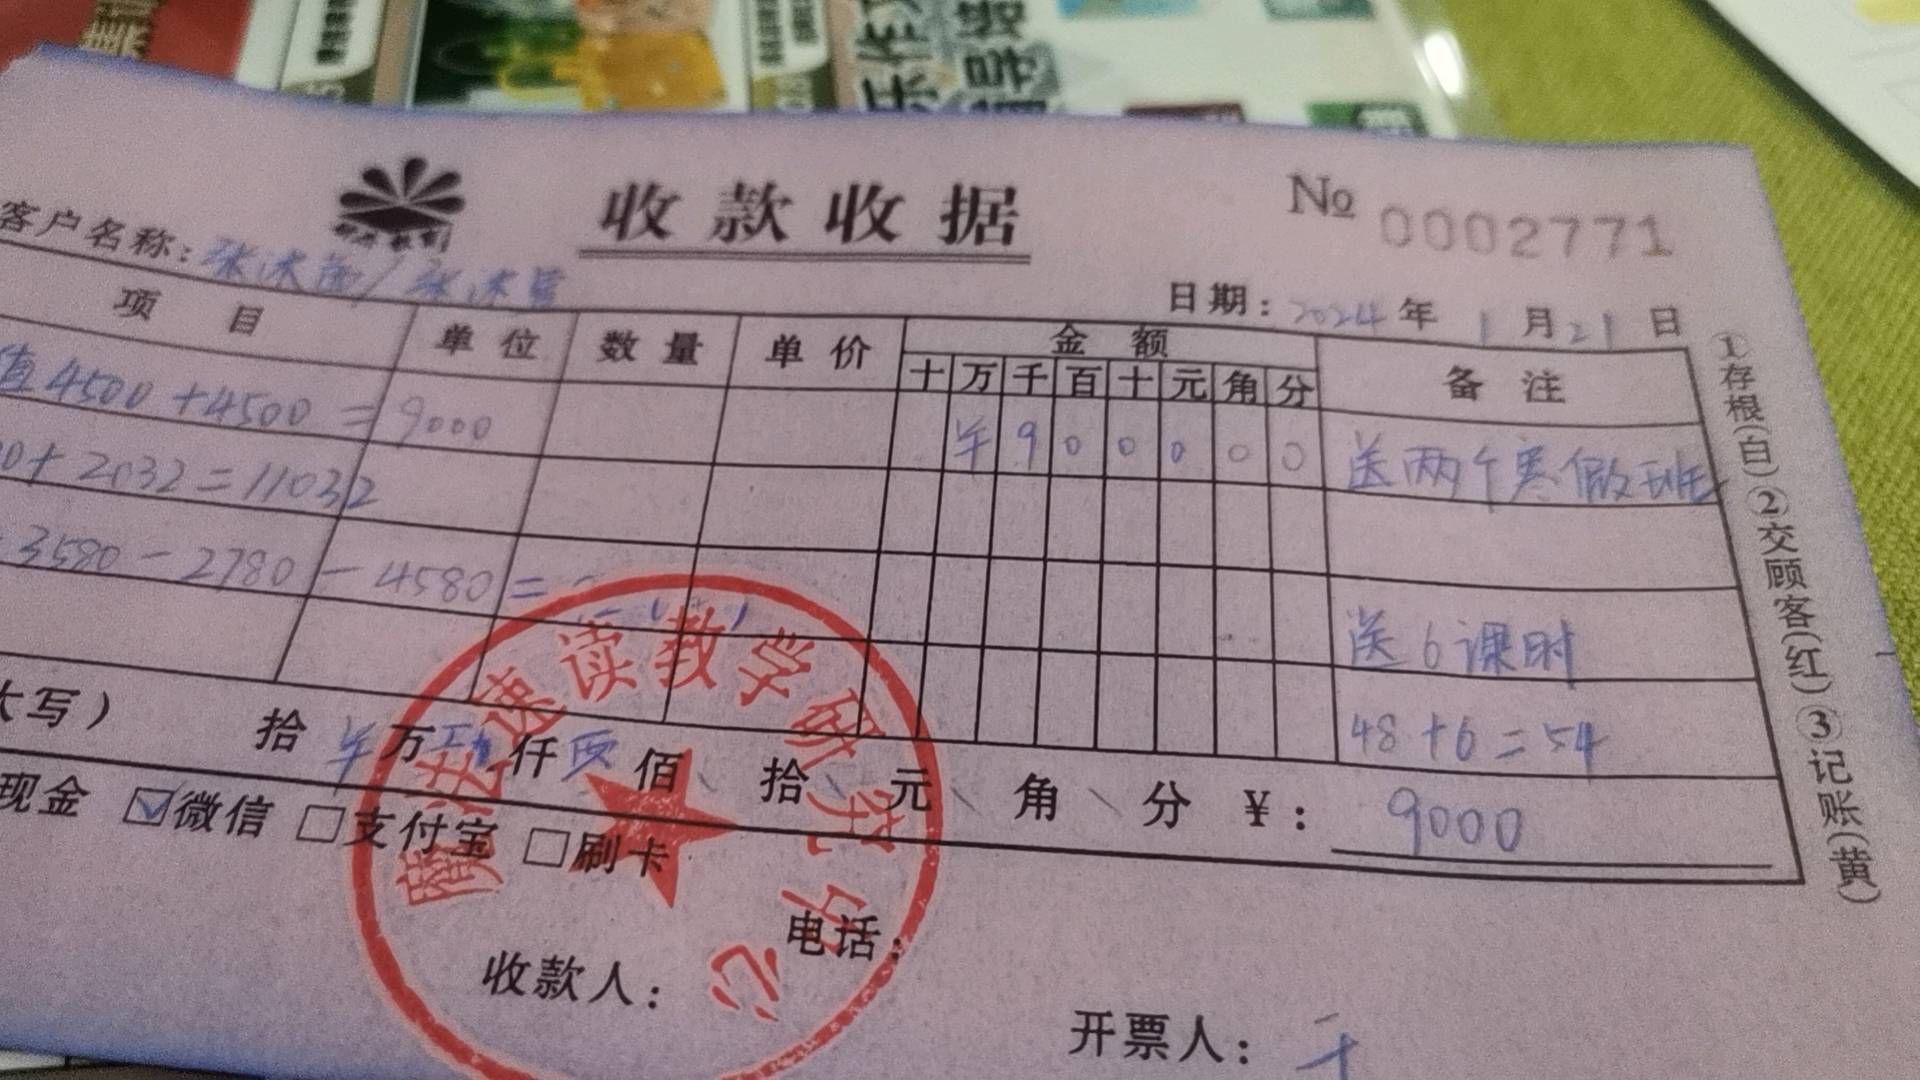 收款收据
No 0002771
客户名称:
日期: 2024 年 1 月 21 日
项目 单位 数量 单价 金额 备注
十 万 千 百 十 元 角 分
值4500+4500=9000 ¥ 9 0 0 0 0 0 送两个寒假班
0+2032=11032
3580-2780-4580= 送6课时
48+6=54
大写) 拾 万 仟 佰 拾 元 角 分 ¥: 9000
现金 ☑微信 □支付宝 □刷卡
速读教学研究中心
收款人: 电话:
开票人:
①存根(白)②交顾客(红)③记账(黄)